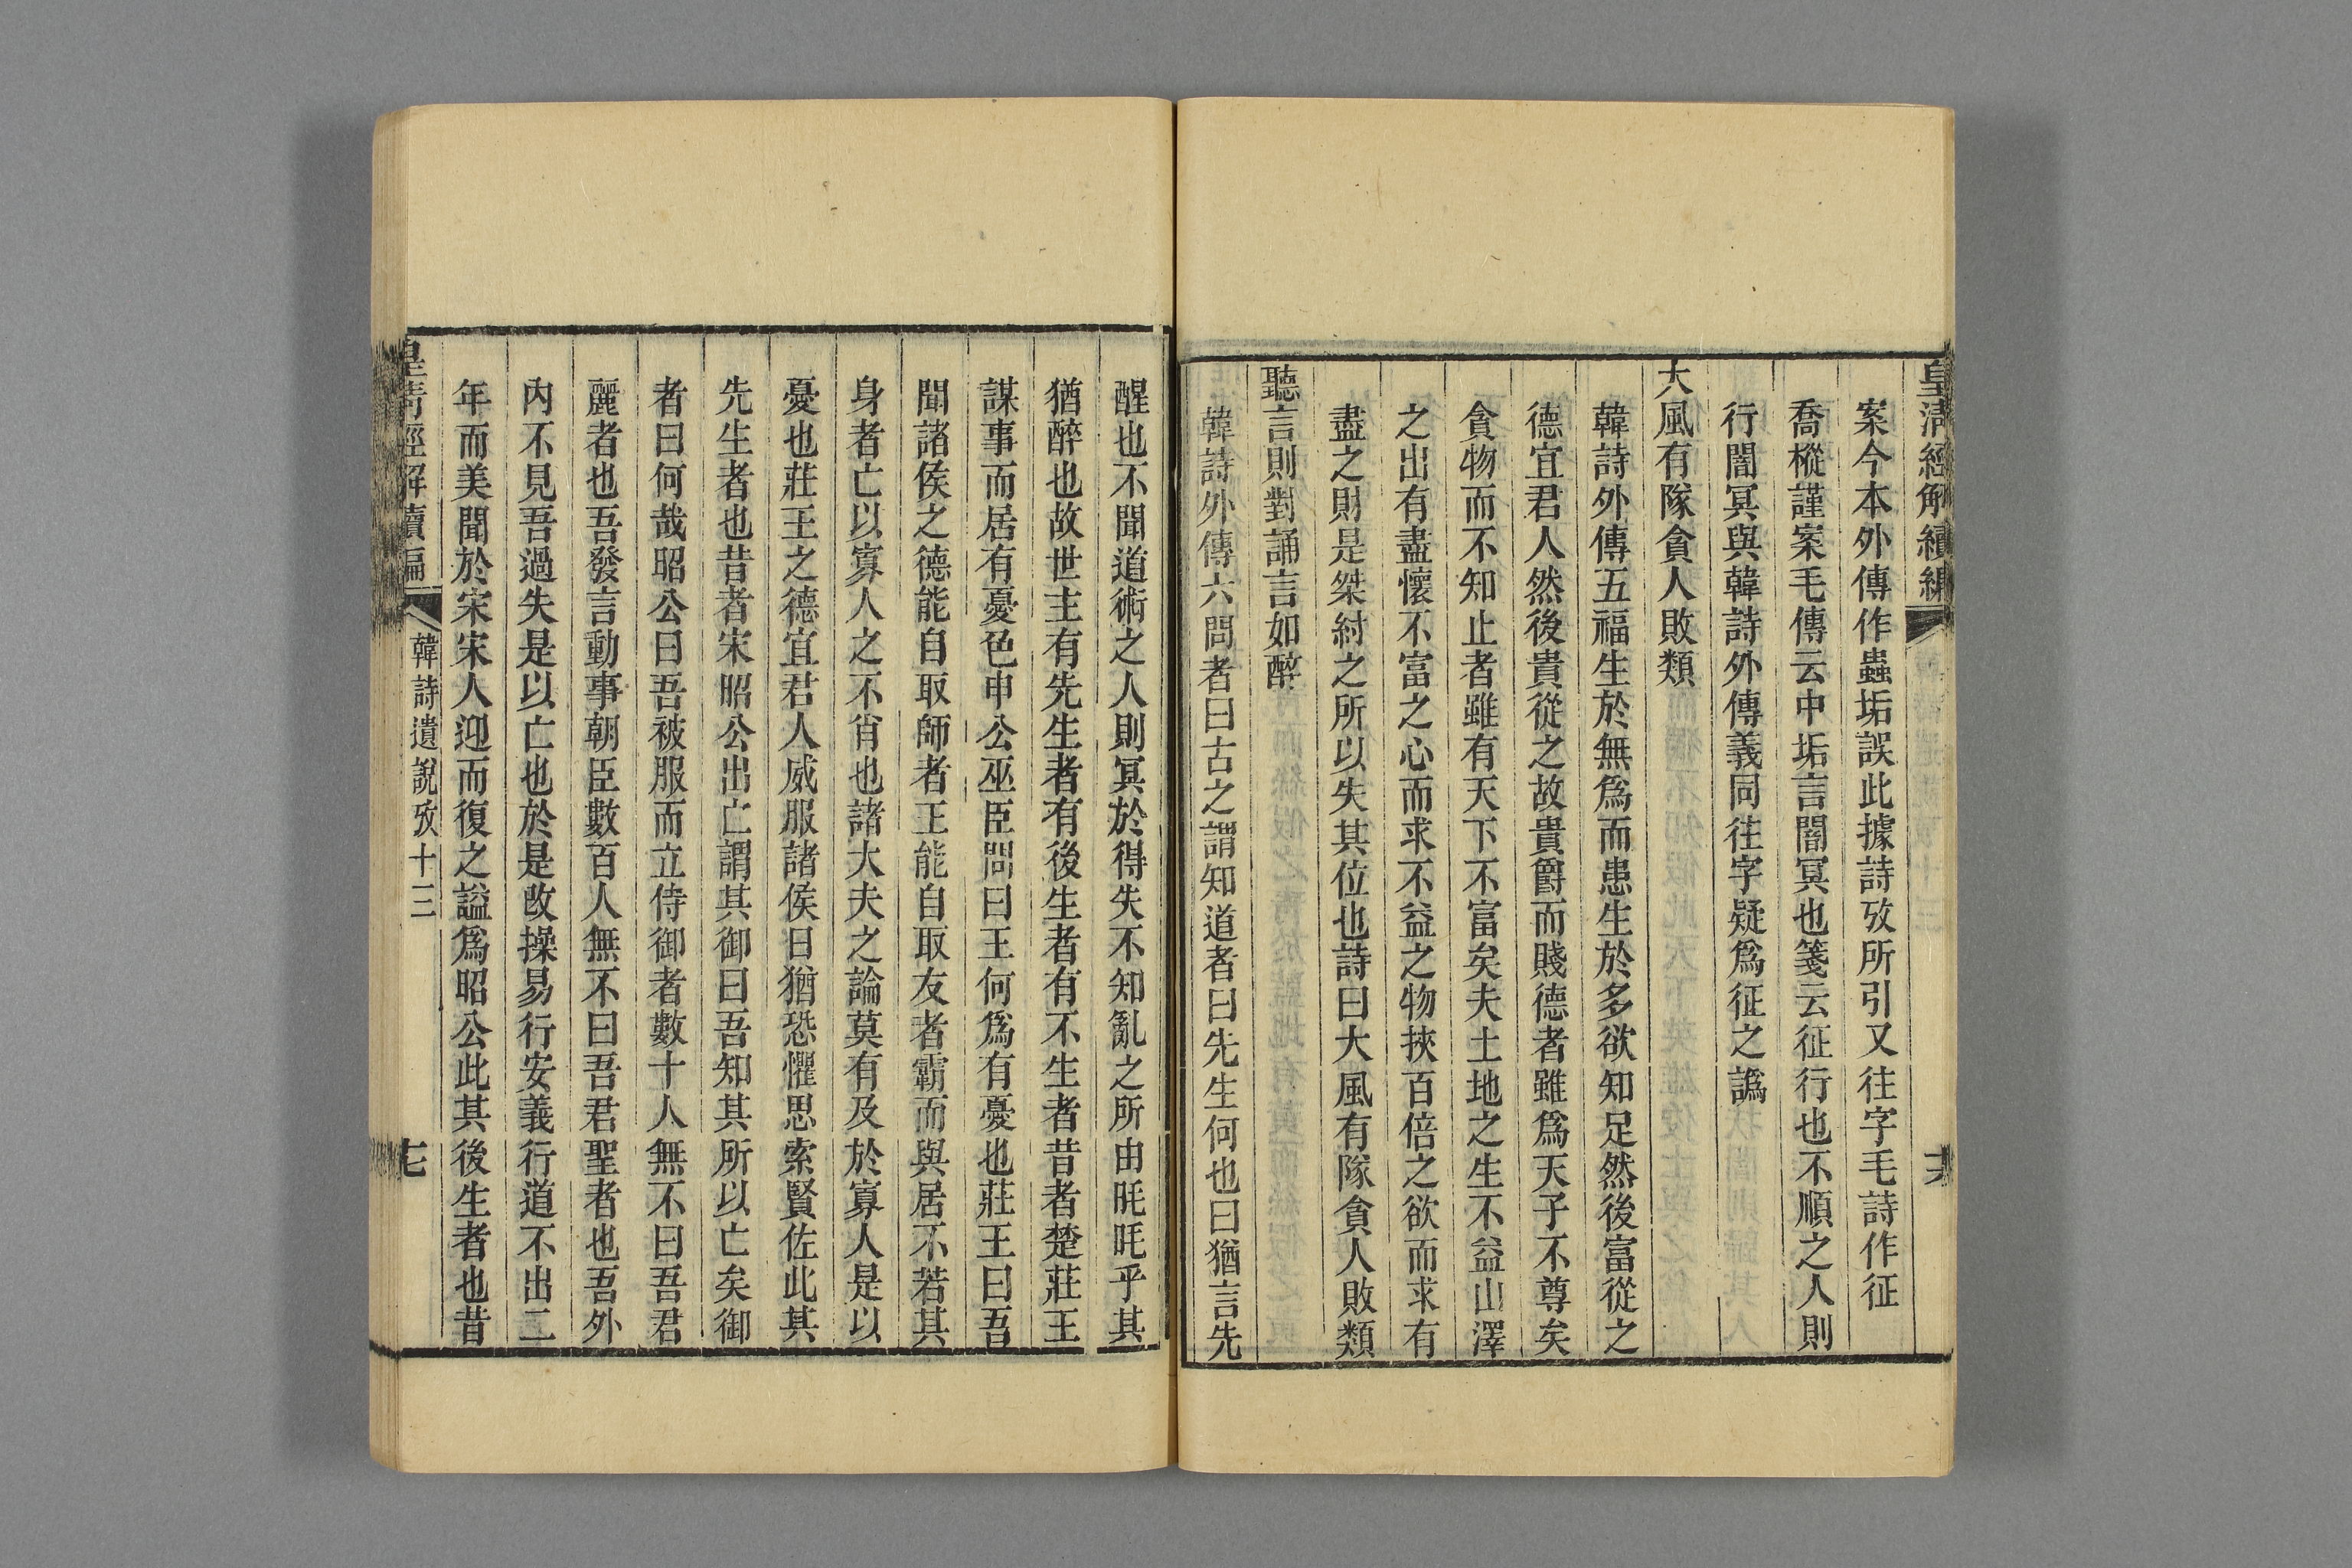 皇清經解續編
六
案今本外傳作蟲垢誤此據詩攷所引又往字毛詩作征
喬樅謹案毛傳云中垢言闇冥也箋云征行也不順之人則
行闇冥與韓詩外傳義同往字疑爲征之譌
大風有隊貪人敗類
韓詩外傳五福生於無爲而患生於多欲知足然後富從之
德宜君人然後貴從之故貴爵而賤德者雖爲天子不尊矣
貪物而不知止者雖有天下不富矣夫土地之生不益山澤
之出有盡懷不富之心而求不益之物挾百倍之欲而求有
盡之財是桀紂之所以失其位也詩曰大風有隊貪人敗類
聽言則對誦言如醉
韓詩外傳六問者曰古之謂知道者曰先生何也曰猶言先
醒也不聞道術之人則冥於得失不知亂之所由眊眊乎其
猶醉也故世主有先生者有後生者有不生者昔者楚莊王
謀事而居有憂色申公巫臣問曰王何爲有憂也莊王曰吾
聞諸侯之德能自取師者王能自取友者霸而與居不若其
身者亡以寡人之不肖也諸大夫之論莫有及於寡人是以
憂也莊王之德宜君人威服諸侯日猶恐懼思索賢佐此其
先生者也昔者宋昭公出亡謂其御曰吾知其所以亡矣御
者曰何哉昭公曰吾被服而立侍御者數十人無不曰吾君
麗者也吾發言動事朝臣數百人無不曰吾君聖者也吾外
內不見吾過失是以亡也於是改操易行安義行道不出二
年而美聞於宋宋人迎而復之謚爲昭公此其後生者也昔
皇清經解續編
韓詩遺說攷十三
七